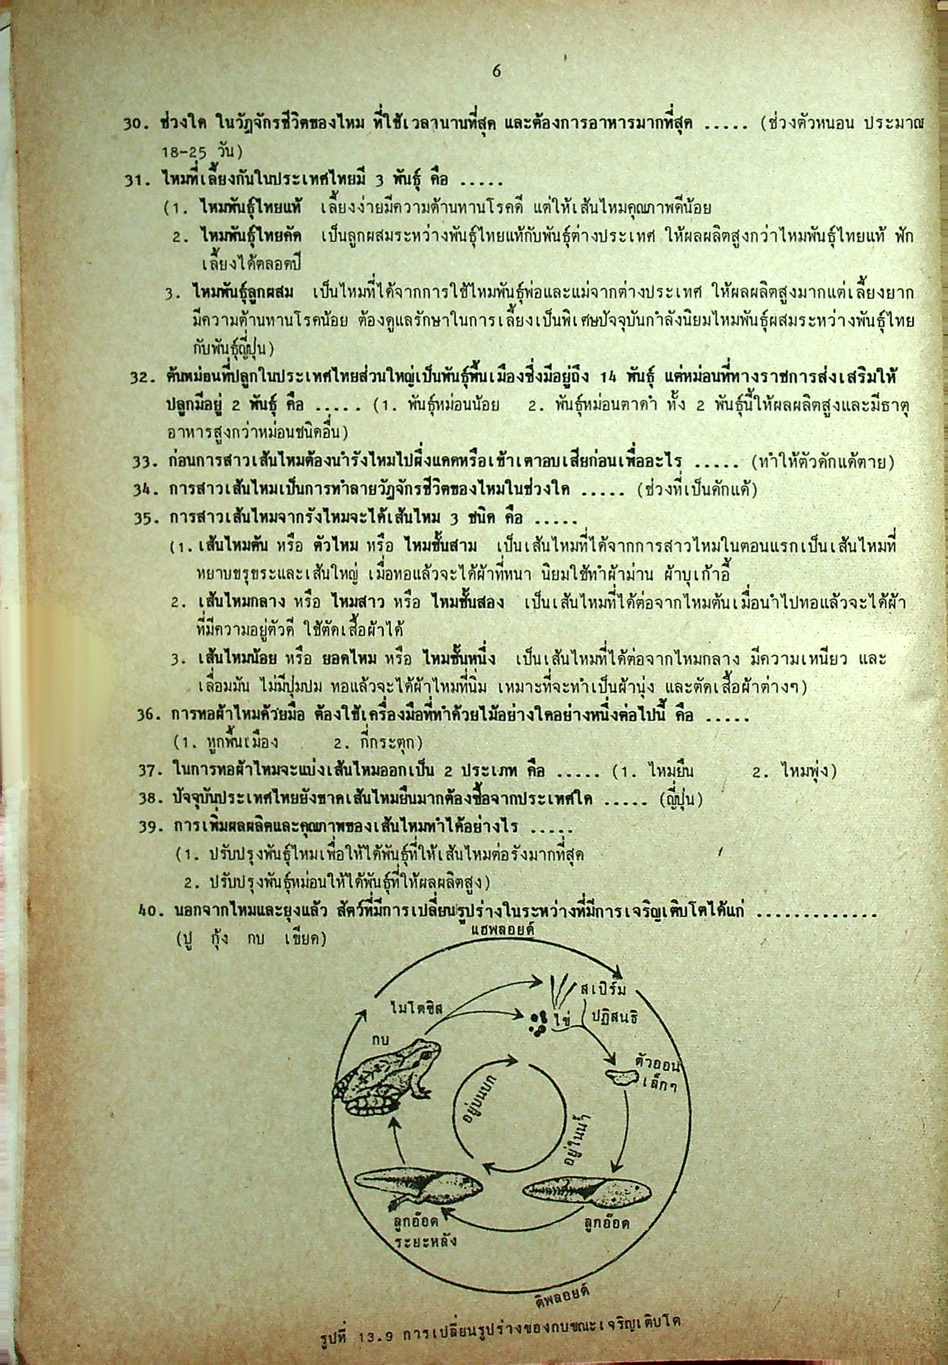 6
30. ช่วงใด ในวัฏจักรชีวิตของไหม ที่ใช้เวลานานที่สุด และต้องการอาหารมากที่สุด ..... (ช่วงตัวหนอน ประมาณ
18-25 วัน)
31. ไหมที่เลี้ยงกันในประเทศไทยมี 3 พันธุ์ คือ .....
(1. ไหมพันธุ์ไทยแท้ เลี้ยงง่ายมีความต้านทานโรคดี แต่ให้เส้นไหมคุณภาพดีน้อย
2. ไหมพันธุ์ไทยคัด เป็นลูกผสมระหว่างพันธุ์ไทยแท้กับพันธุ์ต่างประเทศ ให้ผลผลิตสูงกว่าไหมพันธุ์ไทยแท้ ฟัก
เลี้ยงได้ตลอดปี
3. ไหมพันธุ์ลูกผสม เป็นไหมที่ได้จากการใช้ไหมพันธุ์พ่อและแม่จากต่างประเทศ ให้ผลผลิตสูงมากแต่เลี้ยงยาก
มีความต้านทานโรคน้อย ต้องดูแลรักษาในการเลี้ยงเป็นพิเศษปัจจุบันกำลังนิยมไหมพันธุ์ผสมระหว่างพันธุ์ไทย
กับพันธุ์ญี่ปุ่น)
32. ต้นหม่อนที่ปลูกในประเทศไทยส่วนใหญ่เป็นพันธุ์พื้นเมืองซึ่งมีอยู่ถึง 14 พันธุ์ แต่หม่อนที่ทางราชการส่งเสริมให้
ปลูกมีอยู่ 2 พันธุ์ คือ ..... (1. พันธุ์หม่อนน้อย 2. พันธุ์หม่อนตาดำ ทั้ง 2 พันธุ์นี้ให้ผลผลิตสูงและมีธาตุ
อาหารสูงกว่าหม่อนชนิดอื่น)
33. ก่อนการสาวเส้นไหมต้องนำรังไหมไปผึ่งแดดหรือเข้าเตาอบเสียก่อนเพื่ออะไร ..... (ทำให้ตัวดักแด้ตาย)
34. การสาวเส้นไหมเป็นการทำลายวัฏจักรชีวิตของไหมในช่วงใด ..... (ช่วงที่เป็นดักแด้)
35. การสาวเส้นไหมจากรังไหมจะได้เส้นไหม 3 ชนิด คือ .....
(1. เส้นไหมต้น หรือ ตัวไหม หรือ ไหมชั้นสาม เป็นเส้นไหมที่ได้จากการสาวไหมในตอนแรกเป็นเส้นไหมที่
หยาบขรุขระและเส้นใหญ่ เมื่อทอแล้วจะได้ผ้าที่หนา นิยมใช้ทำผ้าม่าน ผ้าบุเก้าอี้
2. เส้นไหมกลาง หรือ ไหมสาว หรือ ไหมชั้นสอง เป็นเส้นไหมที่ได้ต่อจากไหมต้นเมื่อนำไปทอแล้วจะได้ผ้า
ที่มีความอยู่ตัวดี ใช้ตัดเสื้อผ้าได้
3. เส้นไหมน้อย หรือ ยอดไหม หรือ ไหมชั้นหนึ่ง เป็นเส้นไหมที่ได้ต่อจากไหมกลาง มีความเหนียว และ
เลื่อมมัน ไม่มีปุ่มปม ทอแล้วจะได้ผ้าไหมที่นิ่ม เหมาะที่จะทำเป็นผ้านุ่ง และตัดเสื้อผ้าต่างๆ)
36. การทอผ้าไหมด้วยมือ ต้องใช้เครื่องมือที่ทำด้วยไม้อย่างใดอย่างหนึ่งต่อไปนี้ คือ .....
(1. หูกพื้นเมือง 2. กี่กระตุก)
37. ในการทอผ้าไหมจะแบ่งเส้นไหมออกเป็น 2 ประเภท คือ ..... (1. ไหมยืน 2. ไหมพุ่ง)
38. ปัจจุบันประเทศไทยยังขาดเส้นไหมยืนมากต้องซื้อจากประเทศใด ..... (ญี่ปุ่น)
39. การเพิ่มผลผลิตและคุณภาพของเส้นไหมทำได้อย่างไร .....
(1. ปรับปรุงพันธุ์ไหมเพื่อให้ได้พันธุ์ที่ให้เส้นไหมต่อรังมากที่สุด
2. ปรับปรุงพันธุ์หม่อนให้ได้พันธุ์ที่ให้ผลผลิตสูง)
40. นอกจากไหมและยุงแล้ว สัตว์ที่มีการเปลี่ยนรูปร่างในระหว่างที่มีการเจริญเติบโตได้แก่ .............
(ปู กุ้ง กบ เขียด)
แฮพลอยด์
ไมโตซิส
สเปิร์ม
ไข่
ปฏิสนธิ
กบ
ตัวออน
เล็กๆ
อยู่บนบก
อยู่ในน้ำ
ลูกอ๊อด
ระยะหลัง
ลูกอ๊อด
ดิพลอยด์
รูปที่ 13.9 การเปลี่ยนรูปร่างของกบขณะเจริญเติบโต